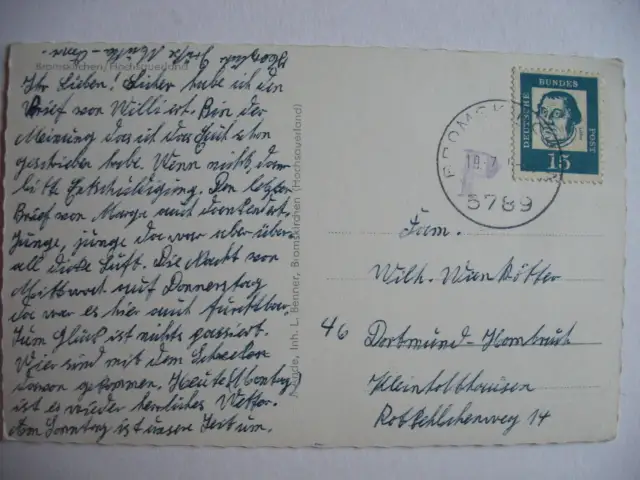 Bromskirchen/Hochsauerland
Ihr Lieben! Sicher habe ich den
Brief von Willi erst. Bin der
Meinung das ich das Gut schon
geschrieben habe. Wenn nicht, dann
bitte Entschuldigung. Den letzten
Brief von Marga auch dankend erst.
Junge, junge da war aber über-
all dicke Luft. Die Nacht von
Mittwoch auf Donnerstag
da war es hier auch furchtbar.
Zum Glück ist nichts passiert.
Wier sind mit dem Schrecken
davon gekommen. Heute (Montag)
ist es wieder herrliches Wetter.
Am Sonntag ist unsere Zeit um.
Inh. L. Benner, Bromskirchen (Hochsauerland)
DEUTSCHE
BUNDES
POST
15
BROMSKI
18.7.
3789
P
Fam.
Wilh. Wienkötter
46 Dortmund-Hombruch
Kleinholthausen
Rotkehlchenweg 14